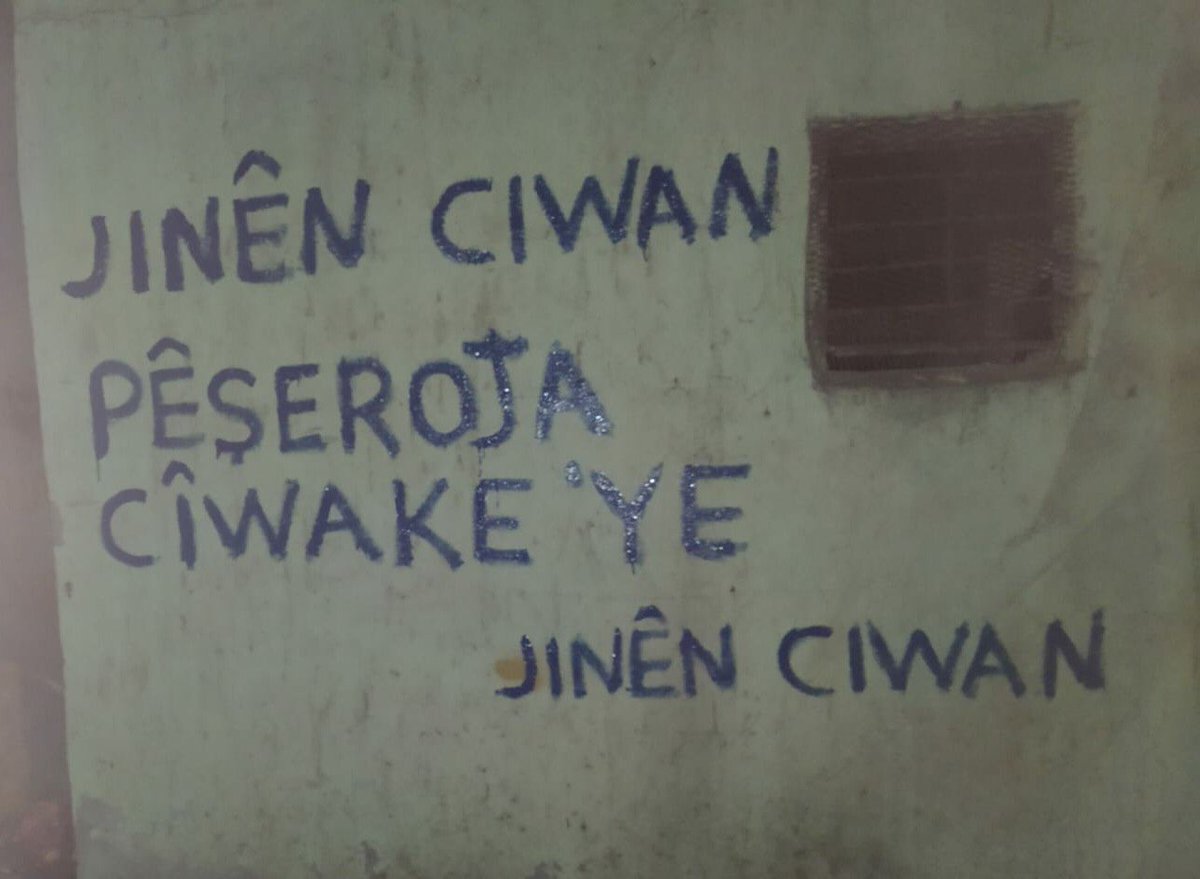 JINÊN CIWAN
PÊŞEROJA
CÎWAKE 'YE
JINÊN CIWAN